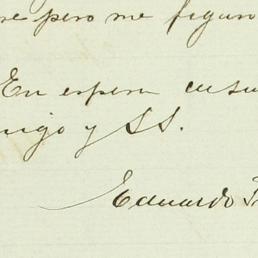 re pero me figuro
En espera de su
migo y SS.
Eduardo